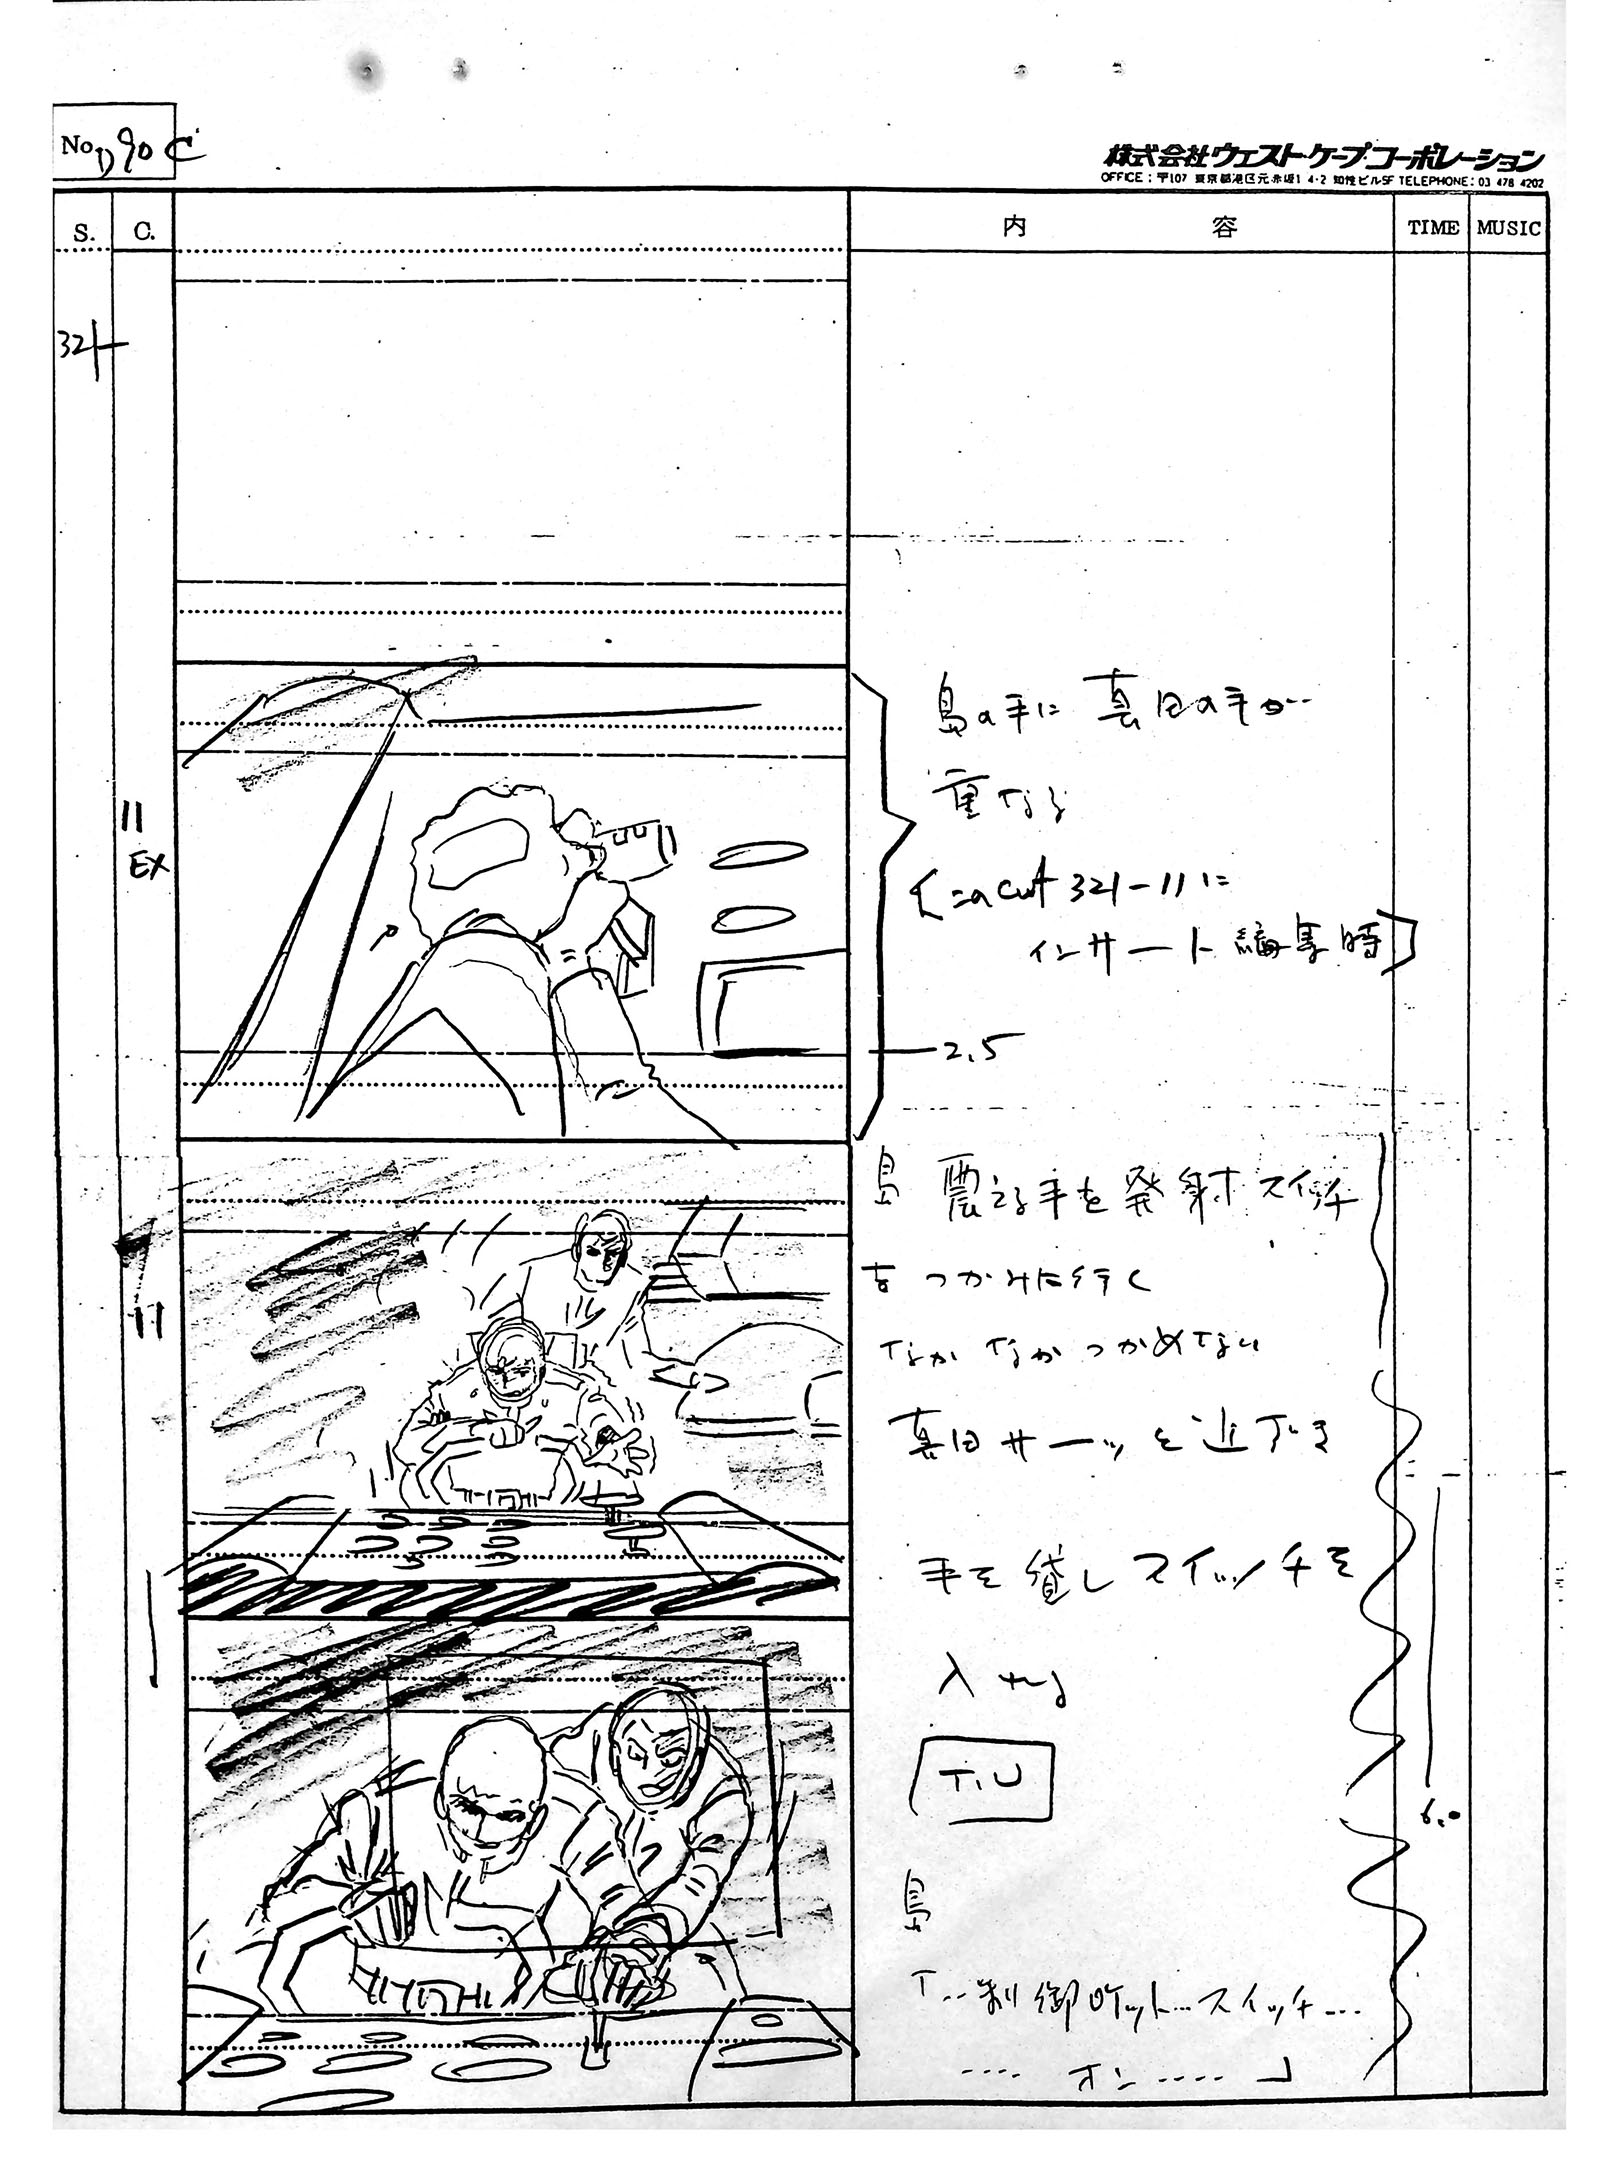 No. D90C
株式会社ウエスト・ケープ・コーポレーション
OFFICE：〒107 東京都港区元赤坂1 4-2 知性ビル5F TELEPHONE：03 478 4202
S. C. 内 容 TIME MUSIC
321
11
EX
島の手に 真田の手が…
重なる
このcut 321-11に
インサート編集時
2.5
11
島 震える手を発射スイッチ
をつかみに行く
なかなかつかめない
真田サーッと近づき
手を貸しスイッチを
入れる
T.U
6.0
島
「…制御ロケット…スイッチ…
…… オン ……」